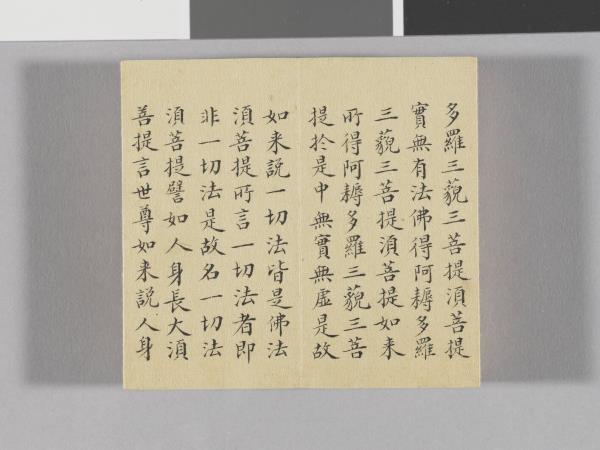 多羅三藐三菩提湏菩提
實無有法佛得阿耨多羅
三藐三菩提湏菩提如来
所得阿耨多羅三藐三菩
提扵是中無實無虛是故
如来說一切法皆是佛法
湏菩提所言一切法者即
非一切法是故名一切法
湏菩提譬如人身長大湏
菩提言世尊如来説人身